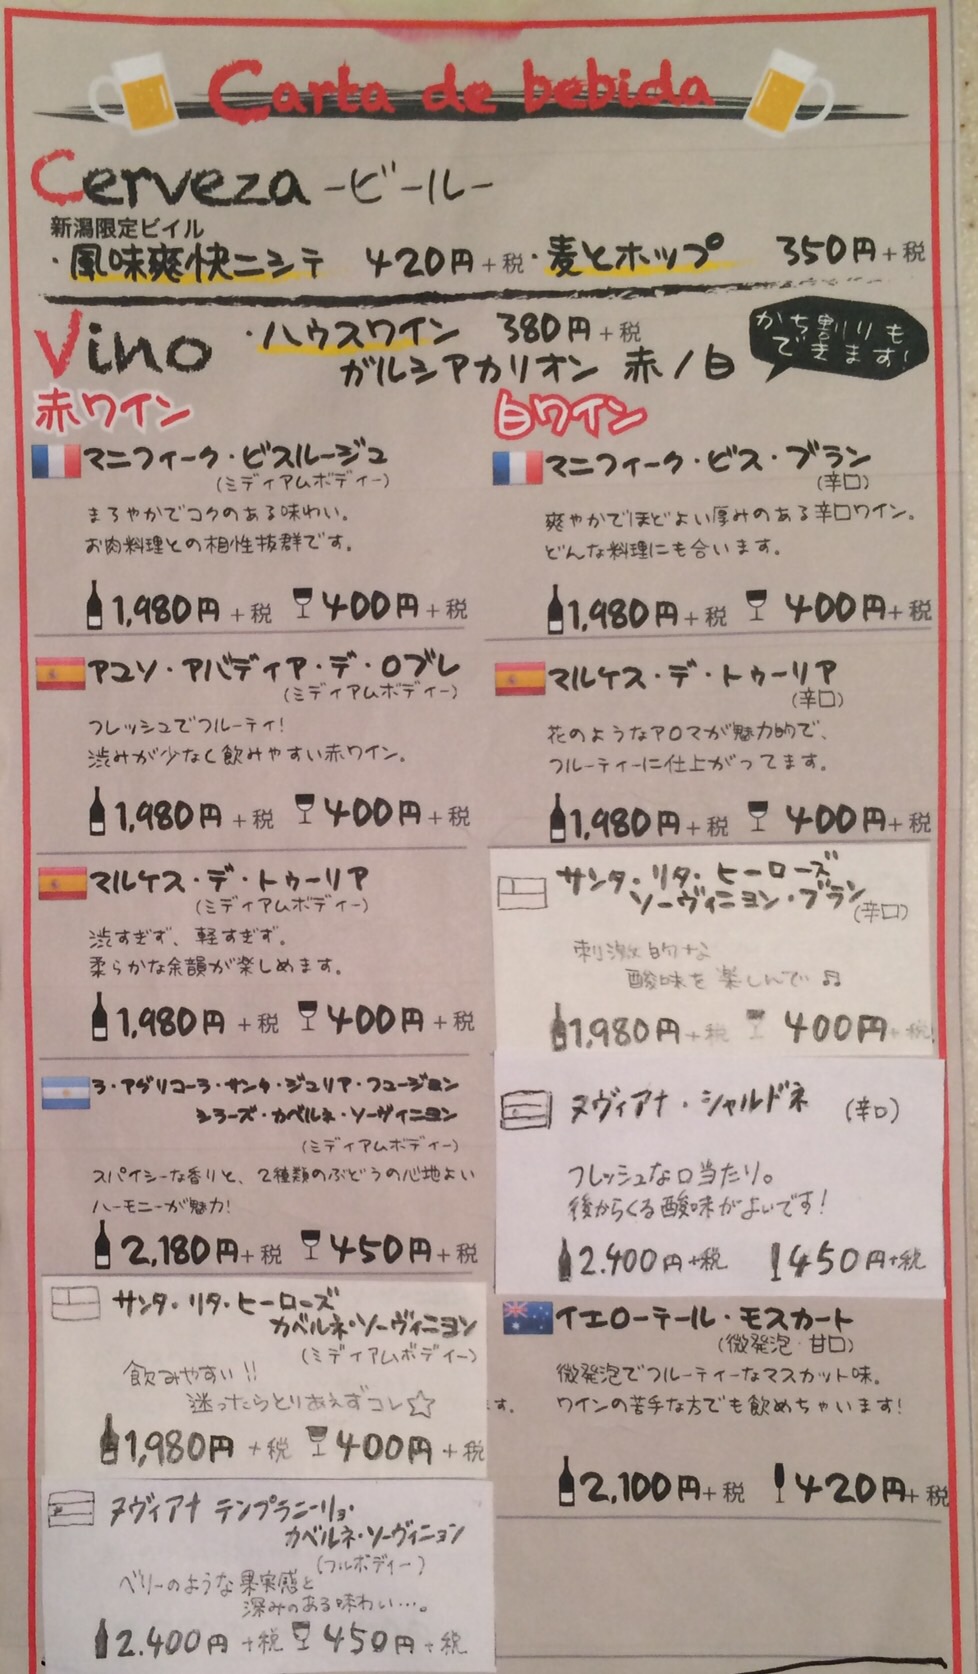 Carta de bebida
Cerveza -ビール-
新潟限定ビイル
・風味爽快ニシテ 420円+税 ・麦とホップ 350円+税
Vino ・ハウスワイン 380円+税
ガルシアカリオン 赤/白
かち割りも
できます!
赤ワイン
マニフィーク・ビスルージュ
(ミディアムボディー)
まろやかでコクのある味わい。
お肉料理との相性抜群です。
1,980円+税 400円+税
アユソ・アバディア・デ・ロブレ
(ミディアムボディー)
フレッシュでフルーティ!
渋みが少なく飲みやすい赤ワイン。
1,980円+税 400円+税
マルケス・デ・トゥーリア
(ミディアムボディー)
渋すぎず、軽すぎず。
柔らかな余韻が楽しめます。
1,980円+税 400円+税
ラ・アグリコーラ・サンタ・ジュリア・フュージョン
シラーズ・カベルネ・ソーヴィニヨン
(ミディアムボディー)
スパイシーな香りと、2種類のぶどうの心地よい
ハーモニーが魅力!
2,180円+税 450円+税
サンタ・リタ・ヒーローズ
カベルネ・ソーヴィニヨン
(ミディアムボディー)
飲みやすい!!
迷ったらとりあえずコレ☆
す。
1,980円+税 400円+税
ヌヴィアナ テンプラニーリョ・
カベルネ・ソーヴィニョン
(フルボディー)
ベリーのような果実感と
深みのある味わい…。
2.400円+税 450円+税
白ワイン
マニフィーク・ビス・ブラン
(辛口)
爽やかでほどよい厚みのある辛口ワイン。
どんな料理にも合います。
1,980円+税 400円+税
マルケス・デ・トゥーリア
(辛口)
花のようなアロマが魅力的で、
フルーティーに仕上がってます。
1,980円+税 400円+税
サンタ・リタ・ヒーローズ
ソーヴィニヨン・ブラン
(辛口)
刺激的な
酸味を楽しんで♫
1,980円+税 400円+税
ヌヴィアナ・シャルドネ (辛口)
フレッシュな口当たり。
後からくる酸味がよいです!
2.400円+税 450円+税
イエローテール・モスカート
(微発泡・甘口)
微発泡でフルーティーなマスカット味。
ワインの苦手な方でも飲めちゃいます!
2,100円+税 420円+税